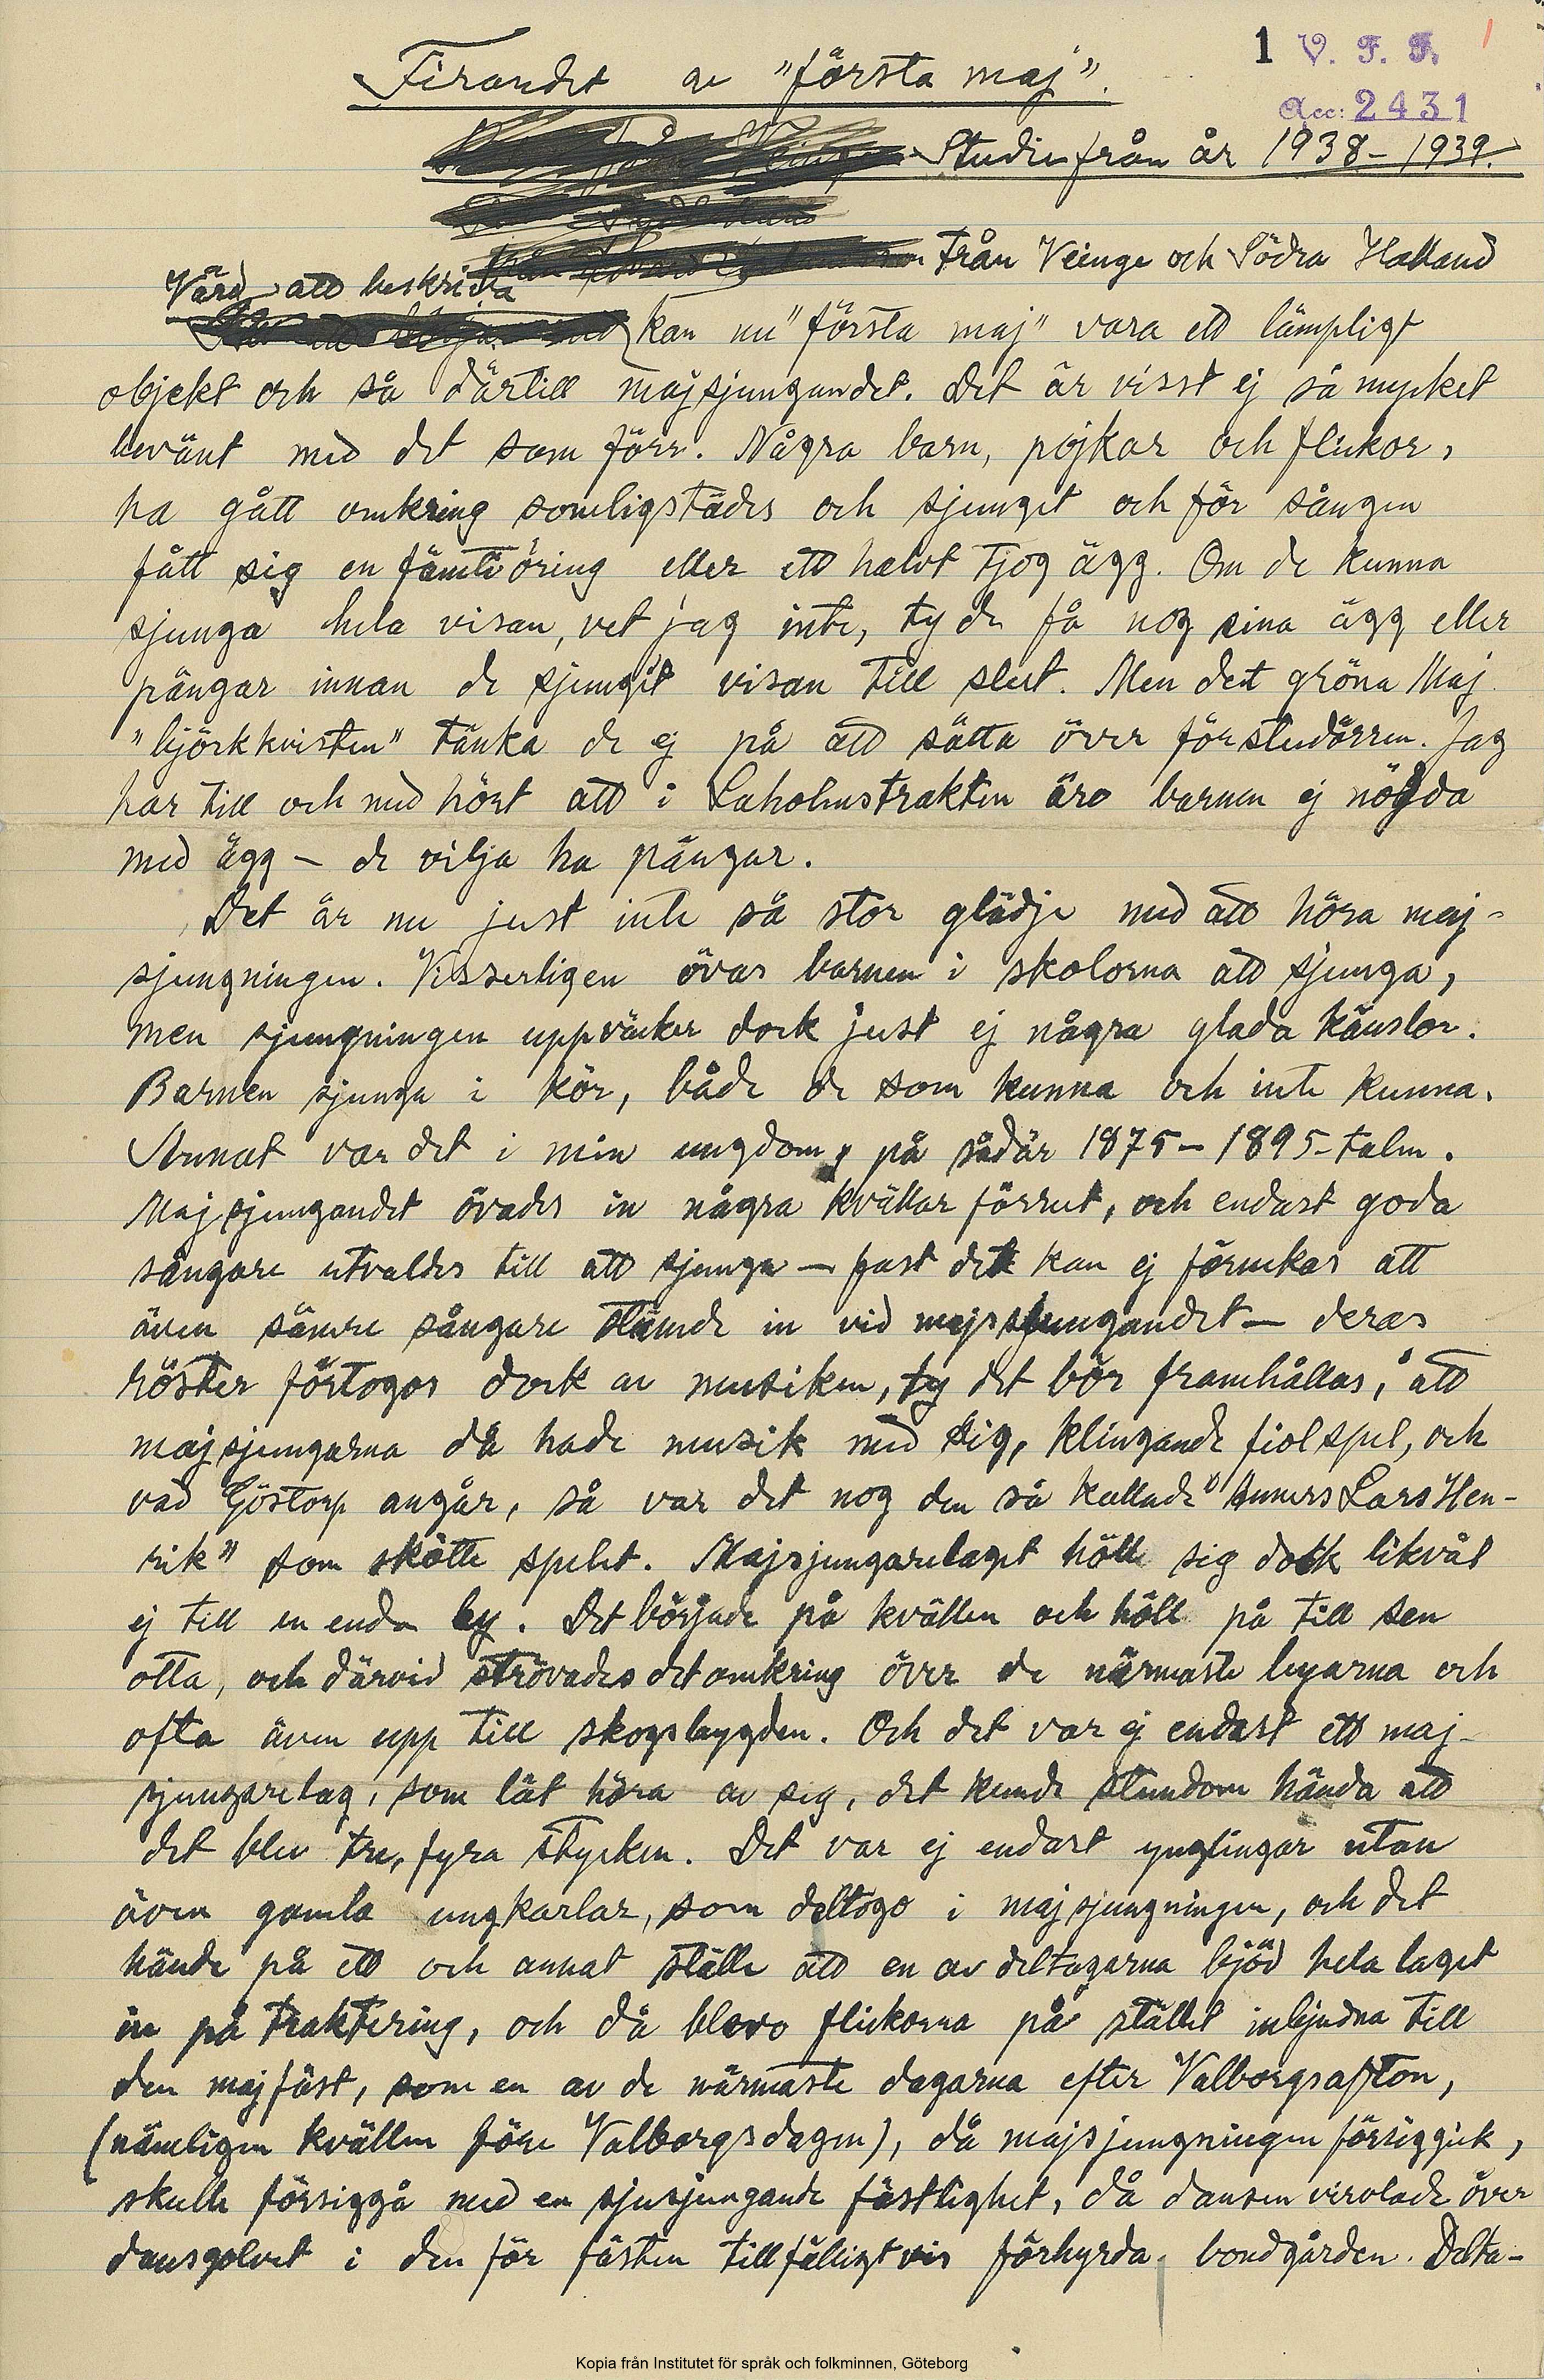 1 V. F. F. 1
Acc: 2431
Firandet av "första maj".
Studie från år 1938-1939.
Från Veinge och Södra Halland
Värd att beskriva
kan nu "första maj" vara ett lämpligt
objekt och så därtill majsjungandet. Det är visst ej så mycket
bevänt med det som förr. Några barn, pojkar och flickor,
ha gått omkring somligstädes och sjungit och för sången
fått sig en fämtiöring eller ett halvt tjog ägg. Om de kunna
sjunga hela visan, vet jag inte, ty de få nog sina ägg eller
pängar innan de sjungit visan till slut. Men det gröna Maj
"björkkvisten" tänka de ej på att sätta över förstudörren. Jag
har till och med hört att i Laholmstrakten äro barnen ej nöjda
med ägg - de vilja ha pängar.
Det är nu just inte så stor glädje med att höra maj-
sjungningen. Visserligen övas barnen i skolorna att sjunga,
men sjungningen uppväcker dock just ej några glada känslor.
Barnen sjunga i kör, både de som kunna och inte kunna.
Annat var det i min ungdom, på sådär 1875-1895-talen.
Majsjungandet övades in några kvällar förrut, och endast goda
sångare utvaldes till att sjunga - fast det kan ej förnekas att
även sämre sångare stämde in vid majsjungandet - deras
röster förtogos dock av musiken, ty det bör framhållas, att
majsjungarna då hade musik med sig, klingande fiolspel, och
vad Göstorp angår, så var det nog den så kallade "Anners Lars Hen-
rik" som skötte spelet. Majsjungarelaget höll sig dock likväl
ej till en enda by. Det började på kvällen och höll på till sen
otta, och därvid strövades det omkring över de närmaste byarna och
ofta även upp till skogsbygden. Och det var ej endast ett maj-
sjungarelag, som lät höra av sig, det kunde stundom hända att
det blev tre, fyra stycken. Det var ej endast ynglingar utan
även gamla ungkarlar, som deltogo i majsjungningen, och det
hände på ett och annat ställe att en av deltagarna bjöd hela laget
in på traktering, och då blevo flickorna på stället inbjudna till
den majfäst, som en av de närmaste dagarna efter Valborgsafton,
(nämligen kvällen före Valborgsdagen), då majsjungningen försiggick,
skulle försiggå med en sjusjungande fästlighet, då dansen virvlade över
dansgolvet i den för fästen tillfälligtvis förhyrda bondgården. Delta-
Kopia från Institutet för språk och folkminnen, Göteborg